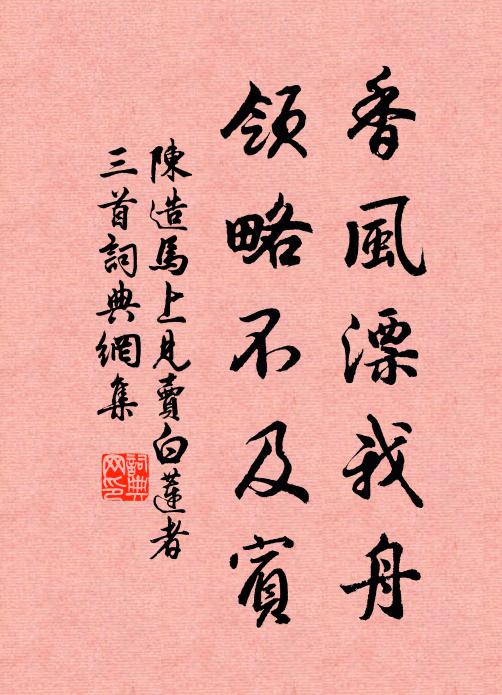 香風漂我舟
領略不及賓
陳造馬上見賣白蓮者
三首詞典網集
詞典網印